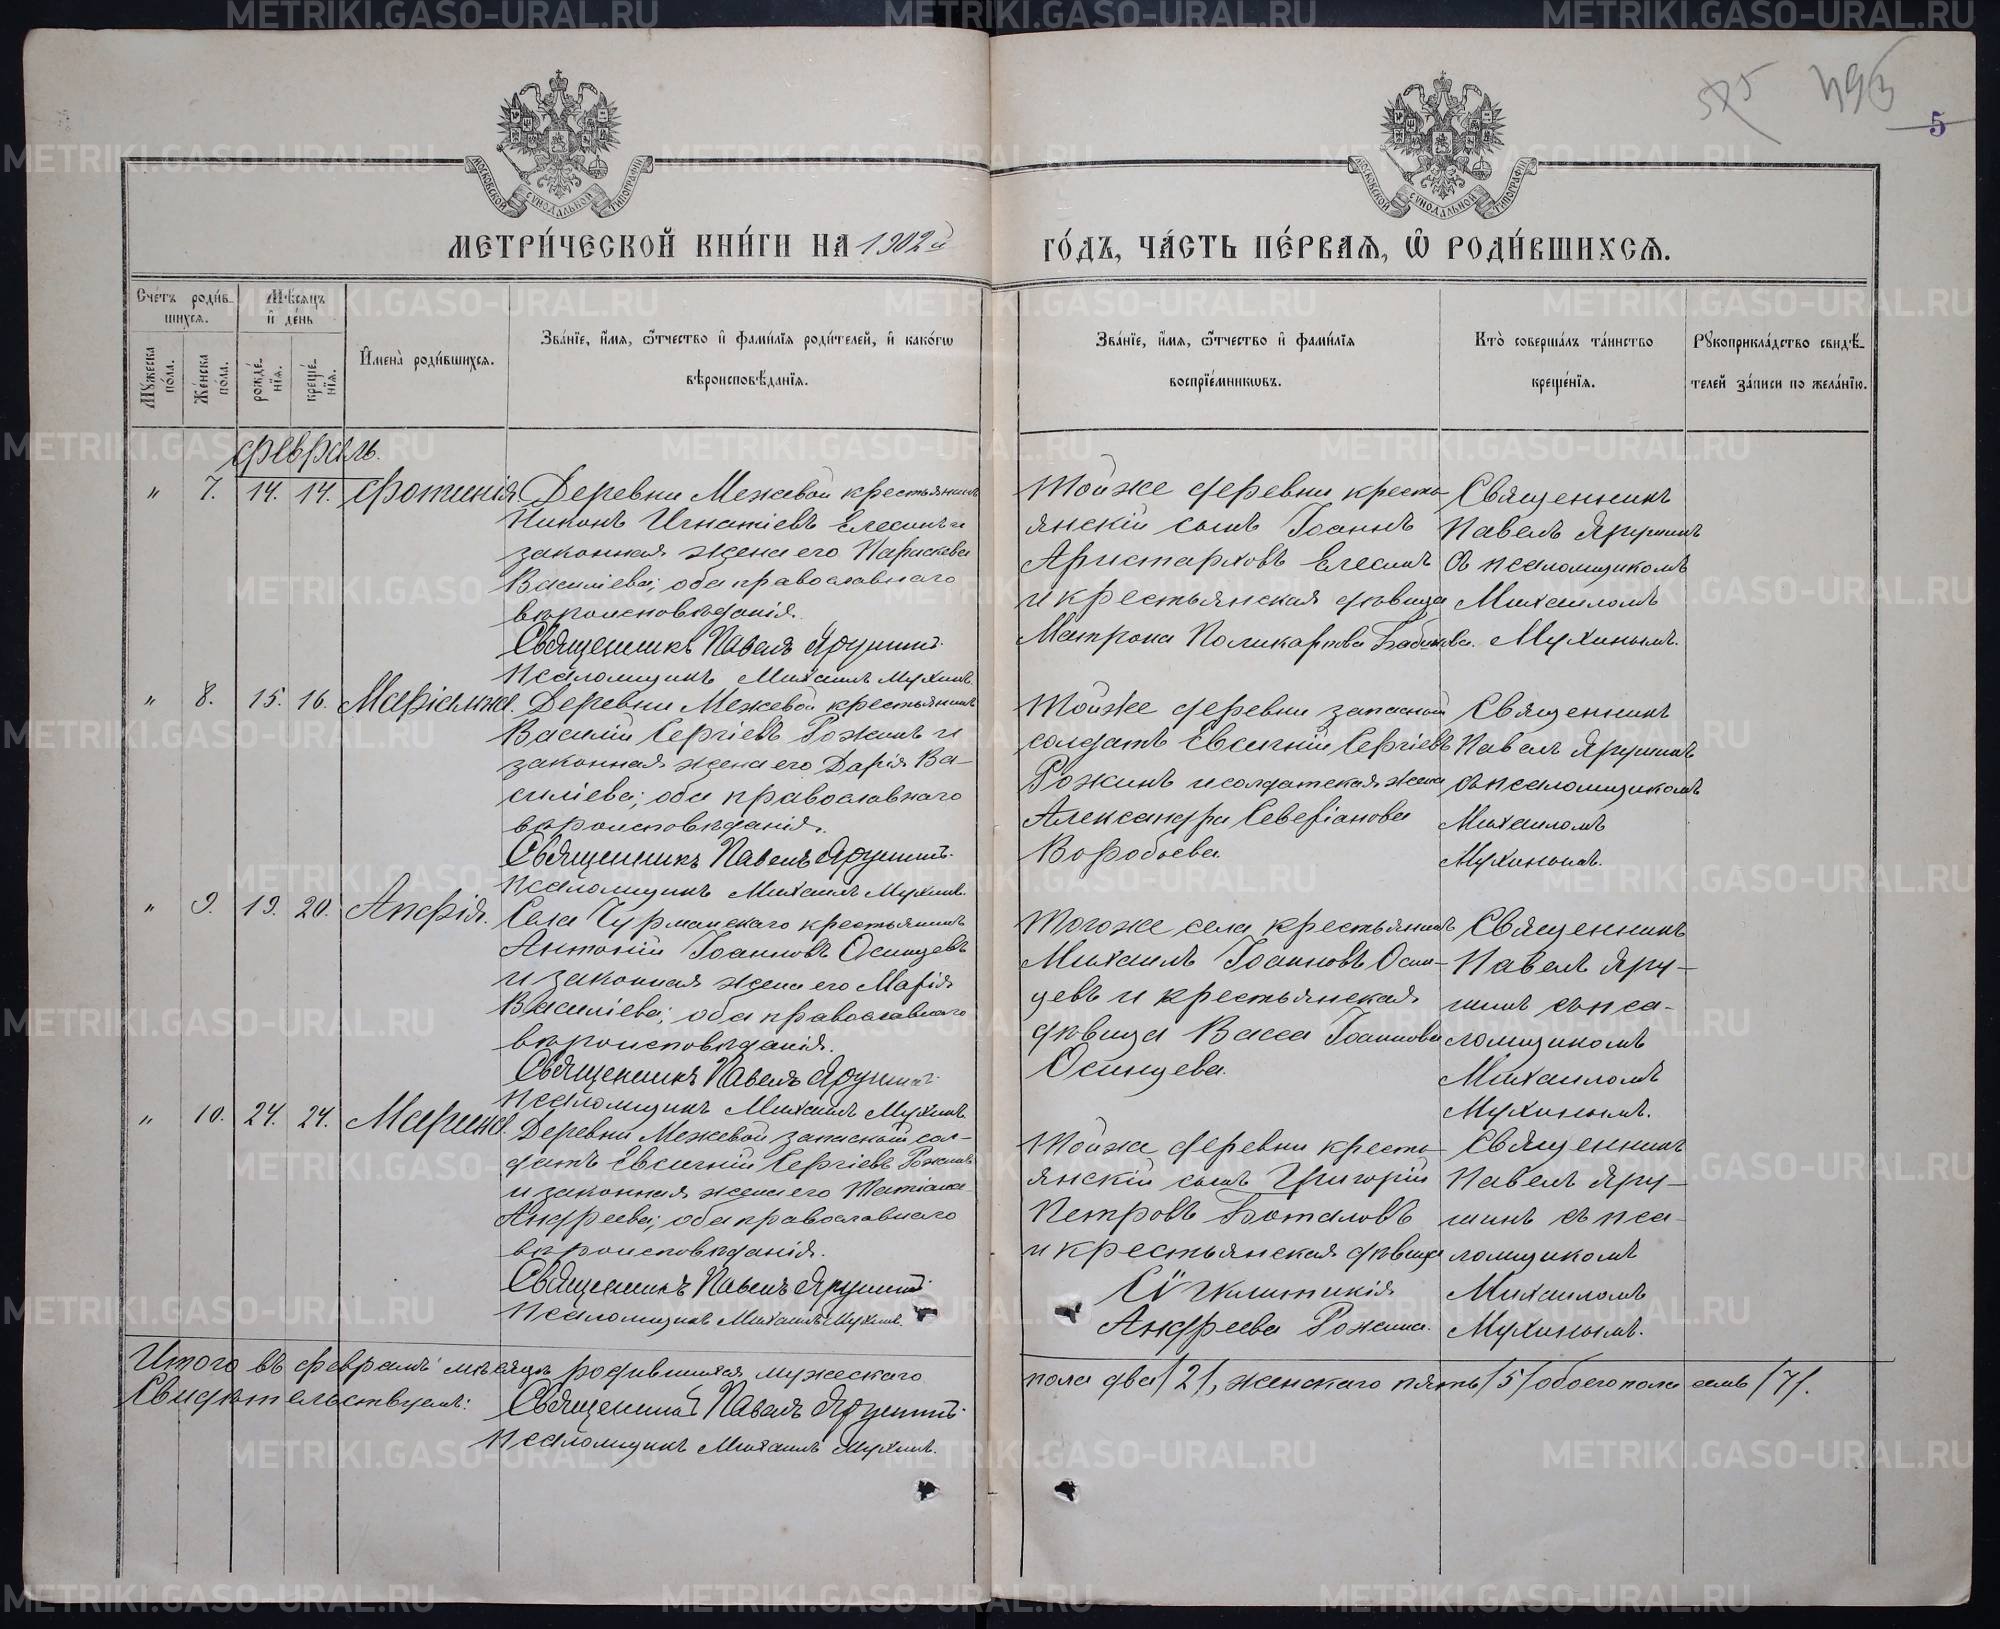 575 493
5
МЕТРИ́ЧЕСКОЙ КНИ́ГИ НА 1902й ГО́ДЪ, ЧА́СТЬ ПЕ́РВАЯ, Ѿ РОДИ́ВШИХСЯ.
Сче́тъ роди́в-
шихся.
Мѣ́сяцъ
и де́нь
Му́жеска по́ла.
Же́нска по́ла.
рожде́-
нїя.
креще́-
нїя.
И҆мена̀ роди́вшихся.
Зва́нїе, и҆́мя, ѻ҆́тчество и҆ фами́лїя роди́телей, и҆ како́гѡ
вѣроисповѣ́данїя.
Зва́нїе, и҆́мя, ѻ҆́тчество и҆ фами́лїя
воспрїе́мникѡвъ.
Кто̀ соверша́лъ та́инство
креще́нїя.
Рукоприкла́дство свидѣ́-
телей за́писи по жела́нїю.
Февраль.
" 7. 14. 14. Фотинія.
Деревни Межевой крестьянинъ
Никонъ Игнатіевъ Елесинъ и
законная жена его Параскева
Василіева; оба православнаго
вѣроисповѣданія.
Священникъ Павелъ Ярушинъ.
Псаломщикъ Михаилъ Мухинъ.
Тойже деревни кресть-
янскій сынъ Іоаннъ
Аристарховъ Елесинъ
и крестьянская дѣвица
Матрона Поликарпова Бабинова.
Священникъ
Павелъ Ярушинъ
съ псаломщикомъ
Михаиломъ
Мухинымъ.
" 8. 15. 16. Маріамна.
Деревни Межевой крестьянинъ
Василій Сергіевъ Рожинъ и
законная жена его Дарія Ва-
силіева; оба православнаго
вѣроисповѣданія.
Священникъ Павелъ Ярушинъ.
Псаломщикъ Михаилъ Мухинъ.
Тойже деревни запасный
солдатъ Евсигній Сергіевъ
Рожинъ и солдатская жена
Александра Северіанова
Воробьева.
Священникъ
Павелъ Ярушинъ
съ псаломщикомъ
Михаиломъ
Мухинымъ.
" 9. 19. 20. Анфія.
Села Чурманскаго крестьянинъ
Антоній Іоанновъ Осинцевъ
и законная жена его Марія
Василіева; оба православнаго
вѣроисповѣданія.
Священникъ Павелъ Ярушинъ.
Псаломщикъ Михаилъ Мухинъ.
Тогоже села крестьянинъ
Михаилъ Іоанновъ Осин-
цевъ и крестьянская
дѣвица Васса Іоаннова
Осинцева.
Священникъ
Павелъ Яру-
шинъ съ пса-
ломщикомъ
Михаиломъ
Мухинымъ.
" 10. 24. 24. Марина.
Деревни Межевой запасный сол-
датъ Евсигній Сергіевъ Рожинъ
и законная жена его Татіана
Андреева; оба православнаго
вѣроисповѣданія.
Священникъ Павелъ Ярушинъ.
Псаломщикъ Михаилъ Мухинъ.
Тойже деревни кресть-
янскій сынъ Григорій
Петровъ Боталовъ
и крестьянская дѣвица
Сѵнклитикія
Андреева Рожина.
Священникъ
Павелъ Яру-
шинъ съ пса-
ломщикомъ
Михаиломъ
Мухинымъ.
Итого въ февралѣ мѣсяцѣ родившихся мужескаго пола два /2/, женскаго пять /5/ обоего пола семь /7/.
Свидѣтельствуемъ: Священникъ Павелъ Ярушинъ.
Псаломщикъ Михаилъ Мухинъ.
METRIKI.GASO-URAL.RU